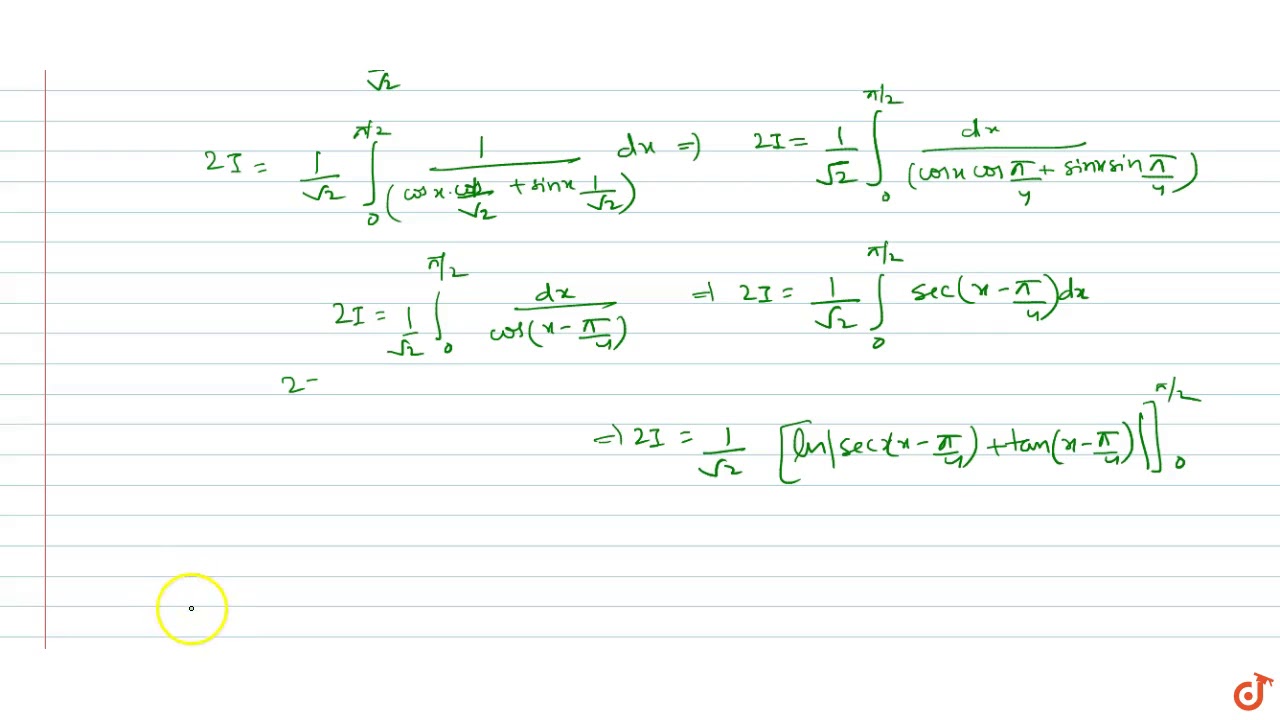 √2
2I = 1/√2 ∫₀^π/2 1/(cosx · 1/√2 + sinx 1/√2) dx ⇒ 2I = 1/√2 ∫₀^π/2 dx/(cosx cos π/4 + sinx sin π/4)
2I = 1/√2 ∫₀^π/2 dx/cos(x − π/4) ⇒ 2I = 1/√2 ∫₀^π/2 sec(x − π/4) dx
2-
⇒ 2I = 1/√2 [ln|sec(x − π/4) + tan(x − π/4)|]₀^π/2